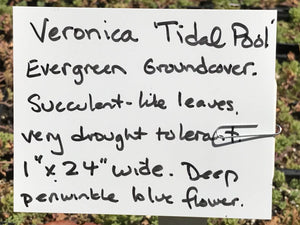 Veronica 'Tidal Pool'
Evergreen Groundcover.
Succulent-like leaves.
very drought tolerant.
1"x 24" wide. Deep
periwinkle blue flower.